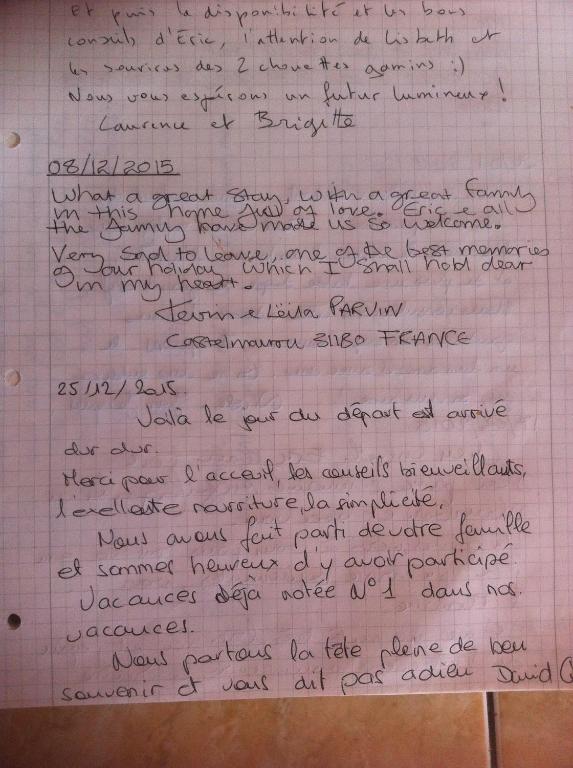 Et puis la disponibilité et les bons
conseils d'Éric, l'attention de Lisbeth et
les sourires des 2 chouettes gamins :)
Nous vous espérons un futur lumineux !
Laurence et Brigitte
08/12/2015
What a great stay, with a great family
in this home full of love. Eric e all
the family have made us so welcome.
Very sad to leave, one of the best memories
of our holiday which I shall hold dear
in my heart.
Kevin e Leïla PARVIN
Castelmaurou 31180 FRANCE
25/12/2015.
Voilà le jour du départ est arrivé
dur dur.
Merci pour l'acceuil, les conseils bienveillants,
l'exellente nourriture, la simplicité.
Nous avons fait parti de votre famille
et sommes heureux d'y avoir participé.
Vacances déjà notée N°1 dans nos
vacances.
Nous partons la tête pleine de beu
souvenir et vous dit pas adieu David